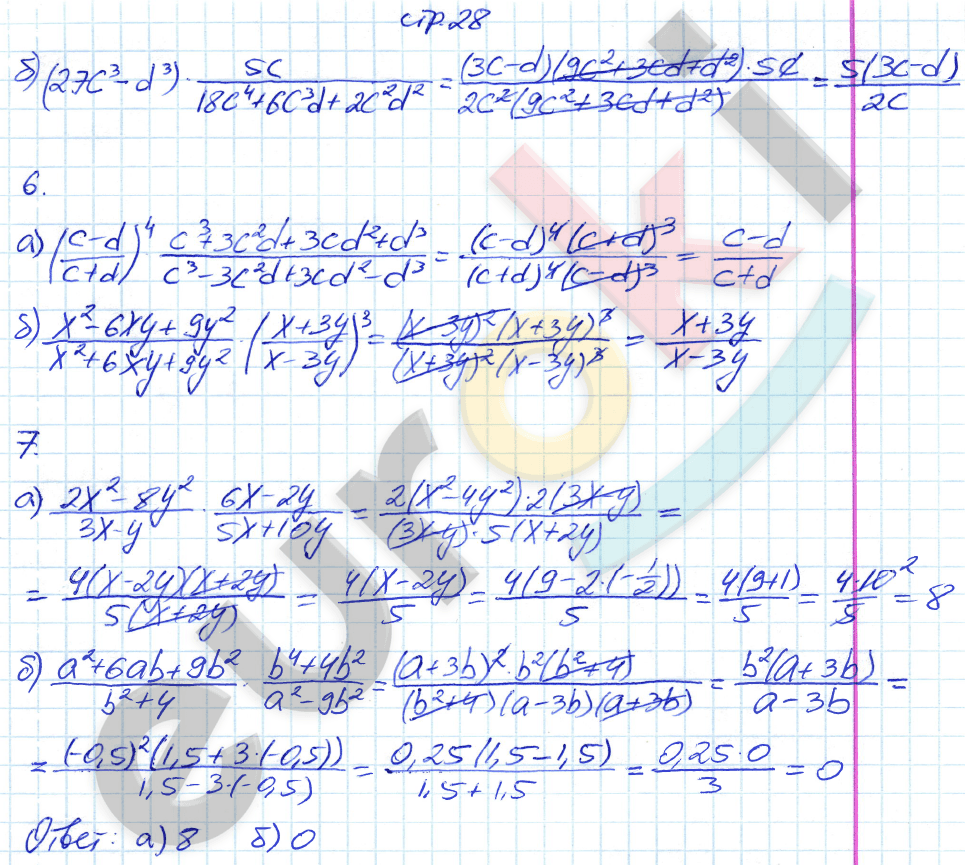 стр. 28
б) (27c³ - d³) · 5c / (18c⁴ + 6c³d + 2c²d²) = (3c-d)(9c² + 3cd + d²) · 5c / (2c²(9c² + 3cd + d²)) = 5(3c-d) / 2c
6.
а) ((c-d)/(c+d))⁴ · (c³+3c²d+3cd²+d³) / (c³-3c²d+3cd²-d³) = (c-d)⁴(c+d)³ / ((c+d)⁴(c-d)³) = (c-d)/(c+d)
б) (x²-6xy+9y²) / (x²+6xy+9y²) · ((x+3y)/(x-3y))³ = (x-3y)²(x+3y)³ / ((x+3y)²(x-3y)³) = (x+3y)/(x-3y)
7.
а) (2x²-8y²)/(3x-y) · (6x-2y)/(5x+10y) = 2(x²-4y²)·2(3x-y) / ((3x-y)·5(x+2y)) =
= 4(x-2y)(x+2y) / (5(x+2y)) = 4(x-2y)/5 = 4(9-2·(-1/2))/5 = 4(9+1)/5 = 4·10²/5 = 8
б) (a²+6ab+9b²)/(b²+4) · (b⁴+4b²)/(a²-9b²) = (a+3b)²·b²(b²+4) / ((b²+4)(a-3b)(a+3b)) = b²(a+3b)/(a-3b) =
= (-0,5)²(1,5+3·(-0,5)) / (1,5-3·(-0,5)) = 0,25(1,5-1,5)/(1,5+1,5) = 0,25·0/3 = 0
Ответ: а) 8 б) 0
euroki